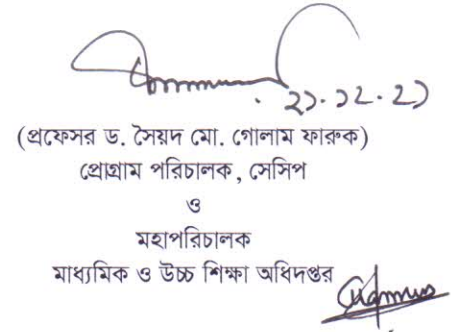 ২১.১২.২১
(প্রফেসর ড. সৈয়দ মো. গোলাম ফারুক)
প্রোগ্রাম পরিচালক, সেসিপ
ও
মহাপরিচালক
মাধ্যমিক ও উচ্চ শিক্ষা অধিদপ্তর